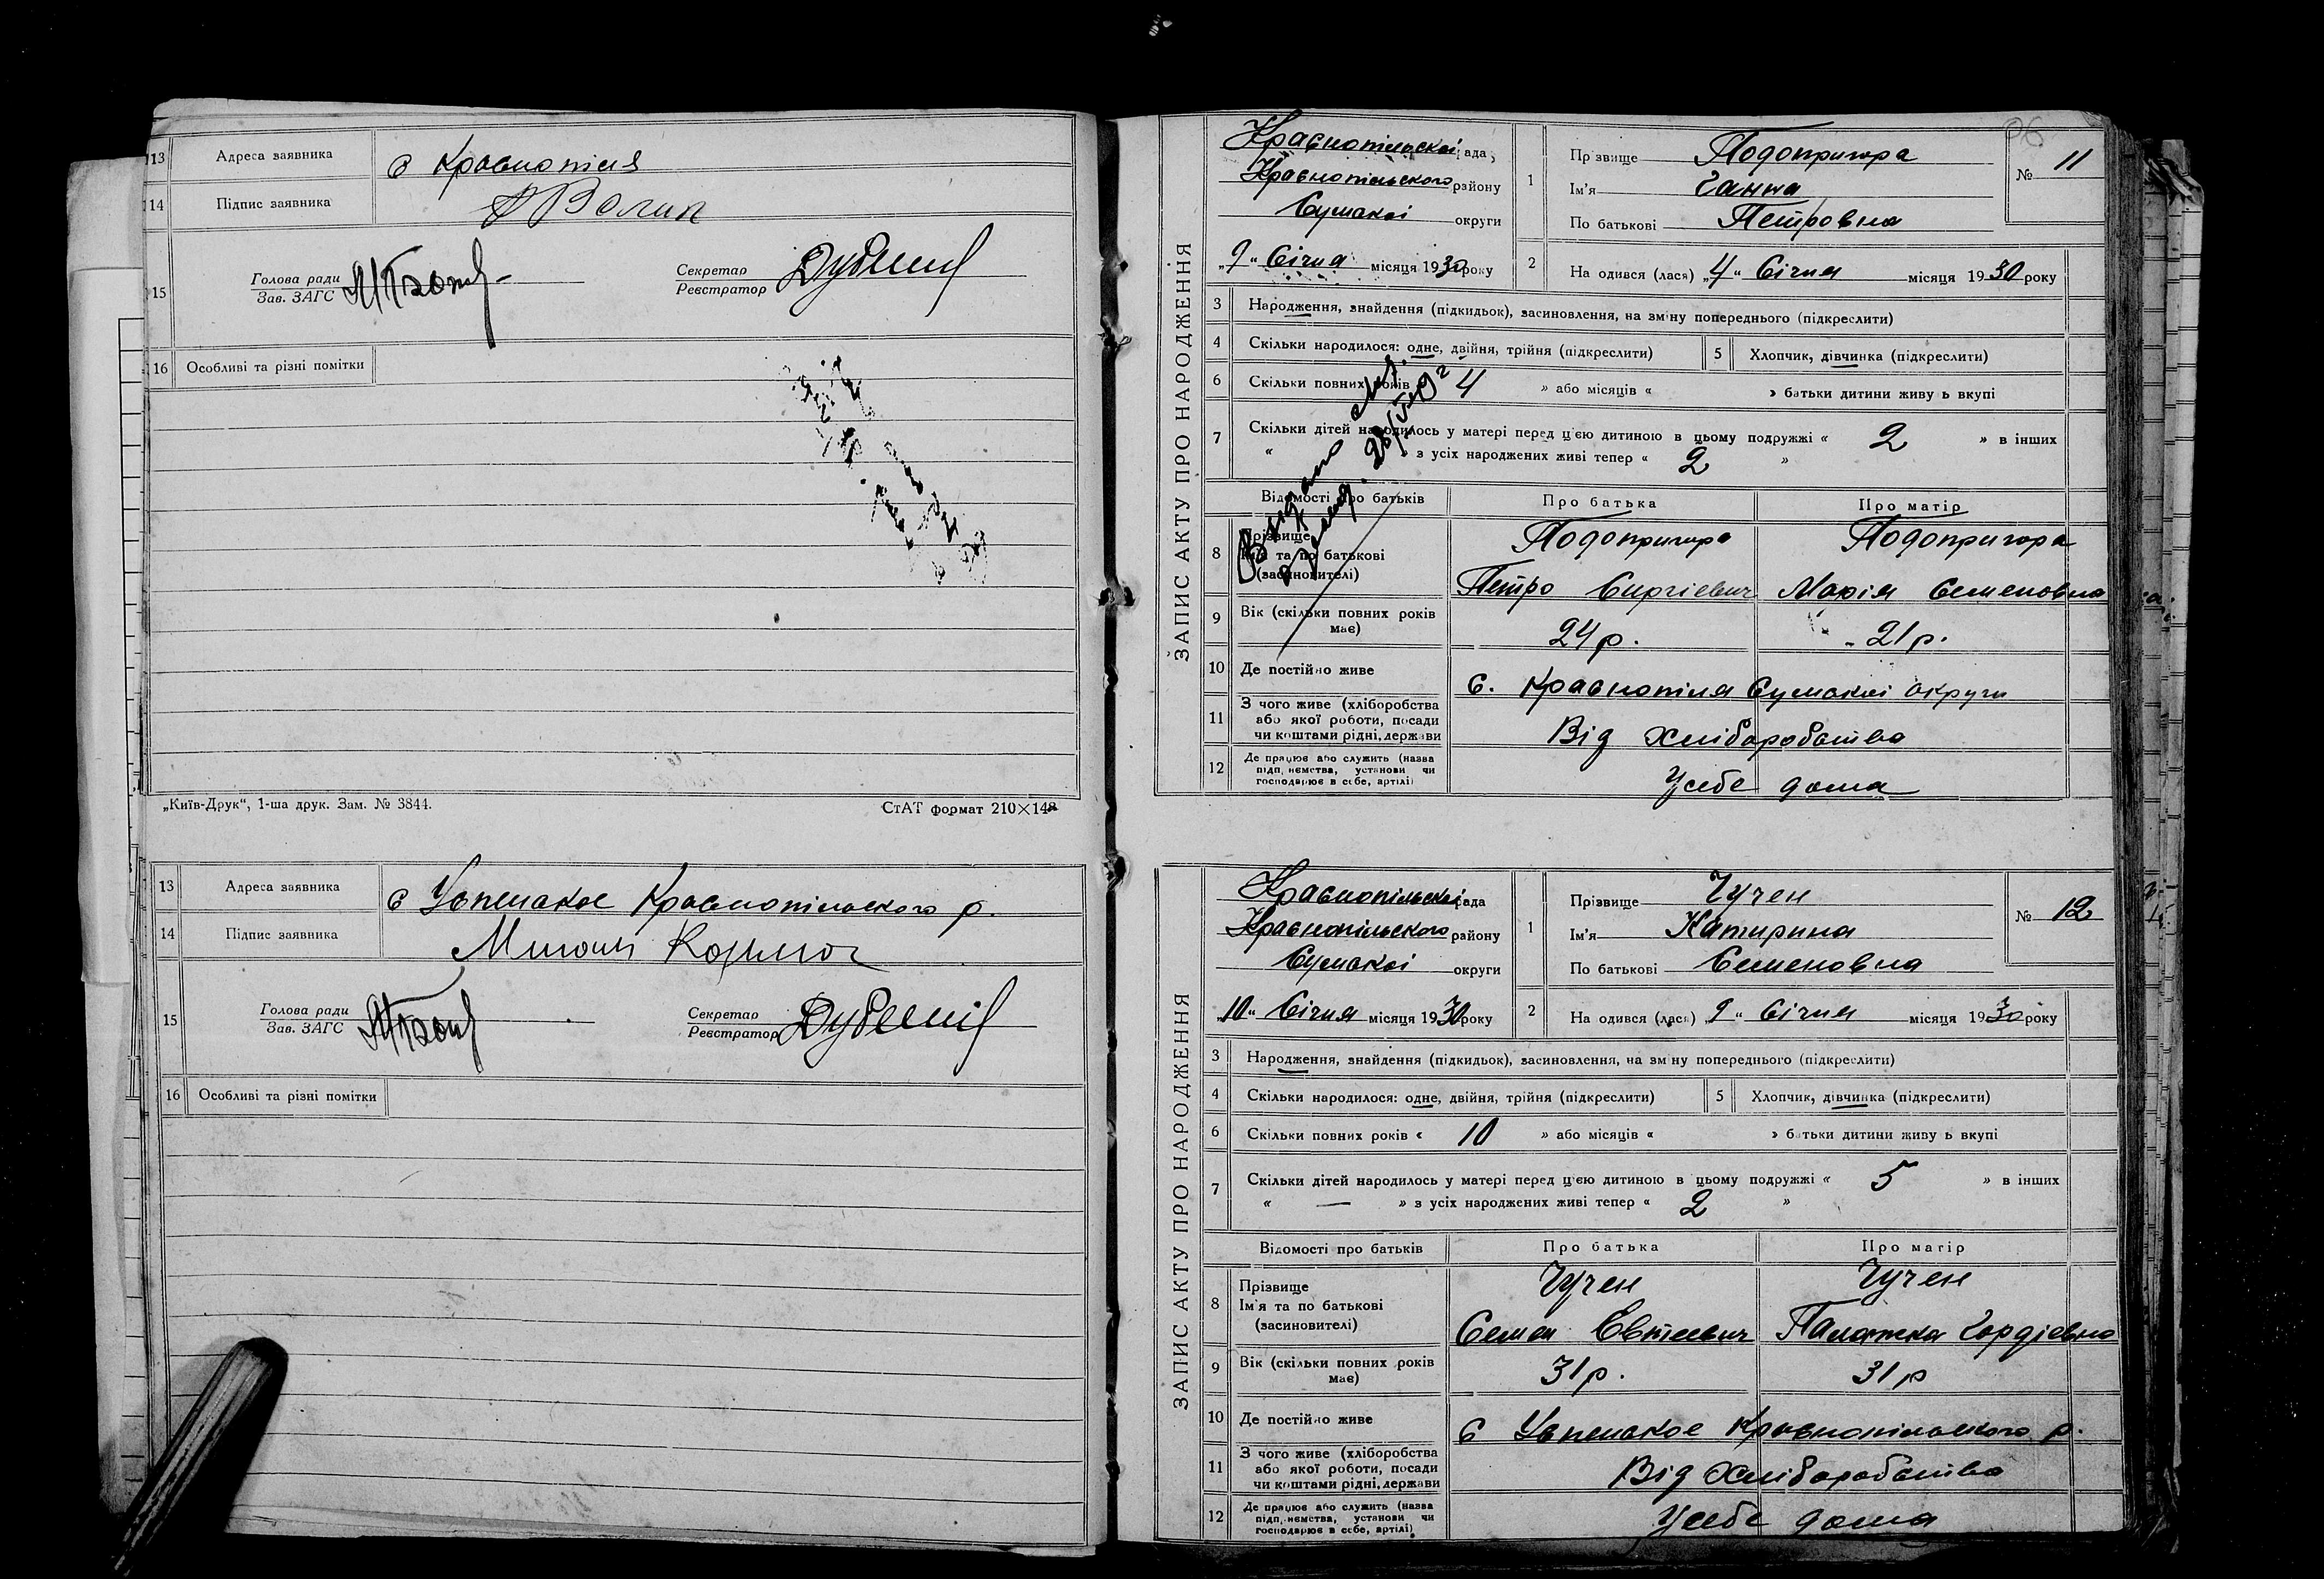 13 Адреса заявника с Краснопілля
14 Підпис заявника
15 Голова ради
Зав. ЗАГС
Секретар
Реєстратор
16 Особливі та різні помітки
„Київ-Друк“, 1-ша друк. Зам. № 3844. СтАТ формат 210×148
13 Адреса заявника с Краснопільського р.
14 Підпис заявника
15 Голова ради
Зав. ЗАГС
Секретар
Реєстратор
16 Особливі та різні помітки
ЗАПИС АКТУ ПРО НАРОДЖЕННЯ
Краснопільскої ради,
Краснопільського району
Сумської округи
„9“ Січня місяця 1930 року
1 Прізвище Подопригора
Ім'я Ганна
По батькові Петровна
№ 11
2 Народився (лася) „4“ Січня місяця 1930 року
3 Народження, знайдення (підкидьок), засиновлення, на зміну попереднього (підкреслити)
4 Скільки народилося: одне, двійня, трійня (підкреслити) 5 Хлопчик, дівчинка (підкреслити)
6 Скільки повних років « 4 » або місяців « » батьки дитини живуть вкупі
7 Скільки дітей народилось у матері перед цією дитиною в цьому подружжі « 2 » в інших
« » з усіх народжених живі тепер « 2 »
Відомості про батьків Про батька Про матір
8 Прізвище Ім'я та по батькові (засиновителі)
Подопригора Подопригора
Петро Сиргієвич Марія Семеновна
9 Вік (скільки повних років має) 24 р. 21 р.
10 Де постійно живе с. Краснопілля Сумської округи
11 З чого живе (хліборобства або якої роботи, посади чи коштами рідні, держави Від хліборобства
12 Де працює або служить (назва підприємства, установи чи господарює в себе, артілі) У себе дома
ЗАПИС АКТУ ПРО НАРОДЖЕННЯ
Краснопільської ради
Краснопільського району
Сумської округи
„10“ Січня місяця 1930 року
1 Прізвище
Ім'я Катирина
По батькові Семеновна
№ 12
2 Народився (лася) „9“ Січня місяця 1930 року
3 Народження, знайдення (підкидьок), засиновлення, на зміну попереднього (підкреслити)
4 Скільки народилося: одне, двійня, трійня (підкреслити) 5 Хлопчик, дівчинка (підкреслити)
6 Скільки повних років « 10 » або місяців « » батьки дитини живуть вкупі
7 Скільки дітей народилось у матері перед цією дитиною в цьому подружжі « 5 » в інших
« — » з усіх народжених живі тепер « 2 »
Відомості про батьків Про батька Про матір
8 Прізвище Ім'я та по батькові (засиновителі)
Семен Гордієвна
9 Вік (скільки повних років має) 31 р. 31 р
10 Де постійно живе с Краснопільського р.
11 З чого живе (хліборобства або якої роботи, посади чи коштами рідні, держави Від хліборобства
12 Де працює або служить (назва підприємства, установи чи господарює в себе, артілі) У себе дома